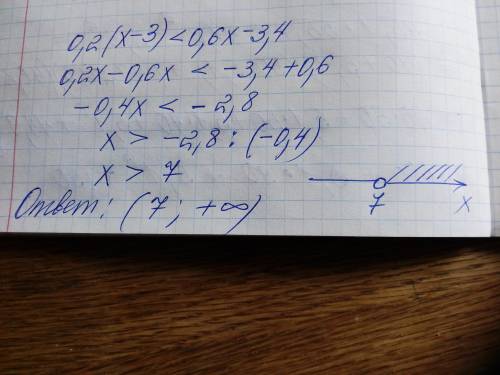 0,2(x-3)<0,6x-3,4
0,2x-0,6x < -3,4+0,6
-0,4x < -2,8
x > -2,8 : (-0,4)
x > 7
7 x
Ответ: (7; +∞)